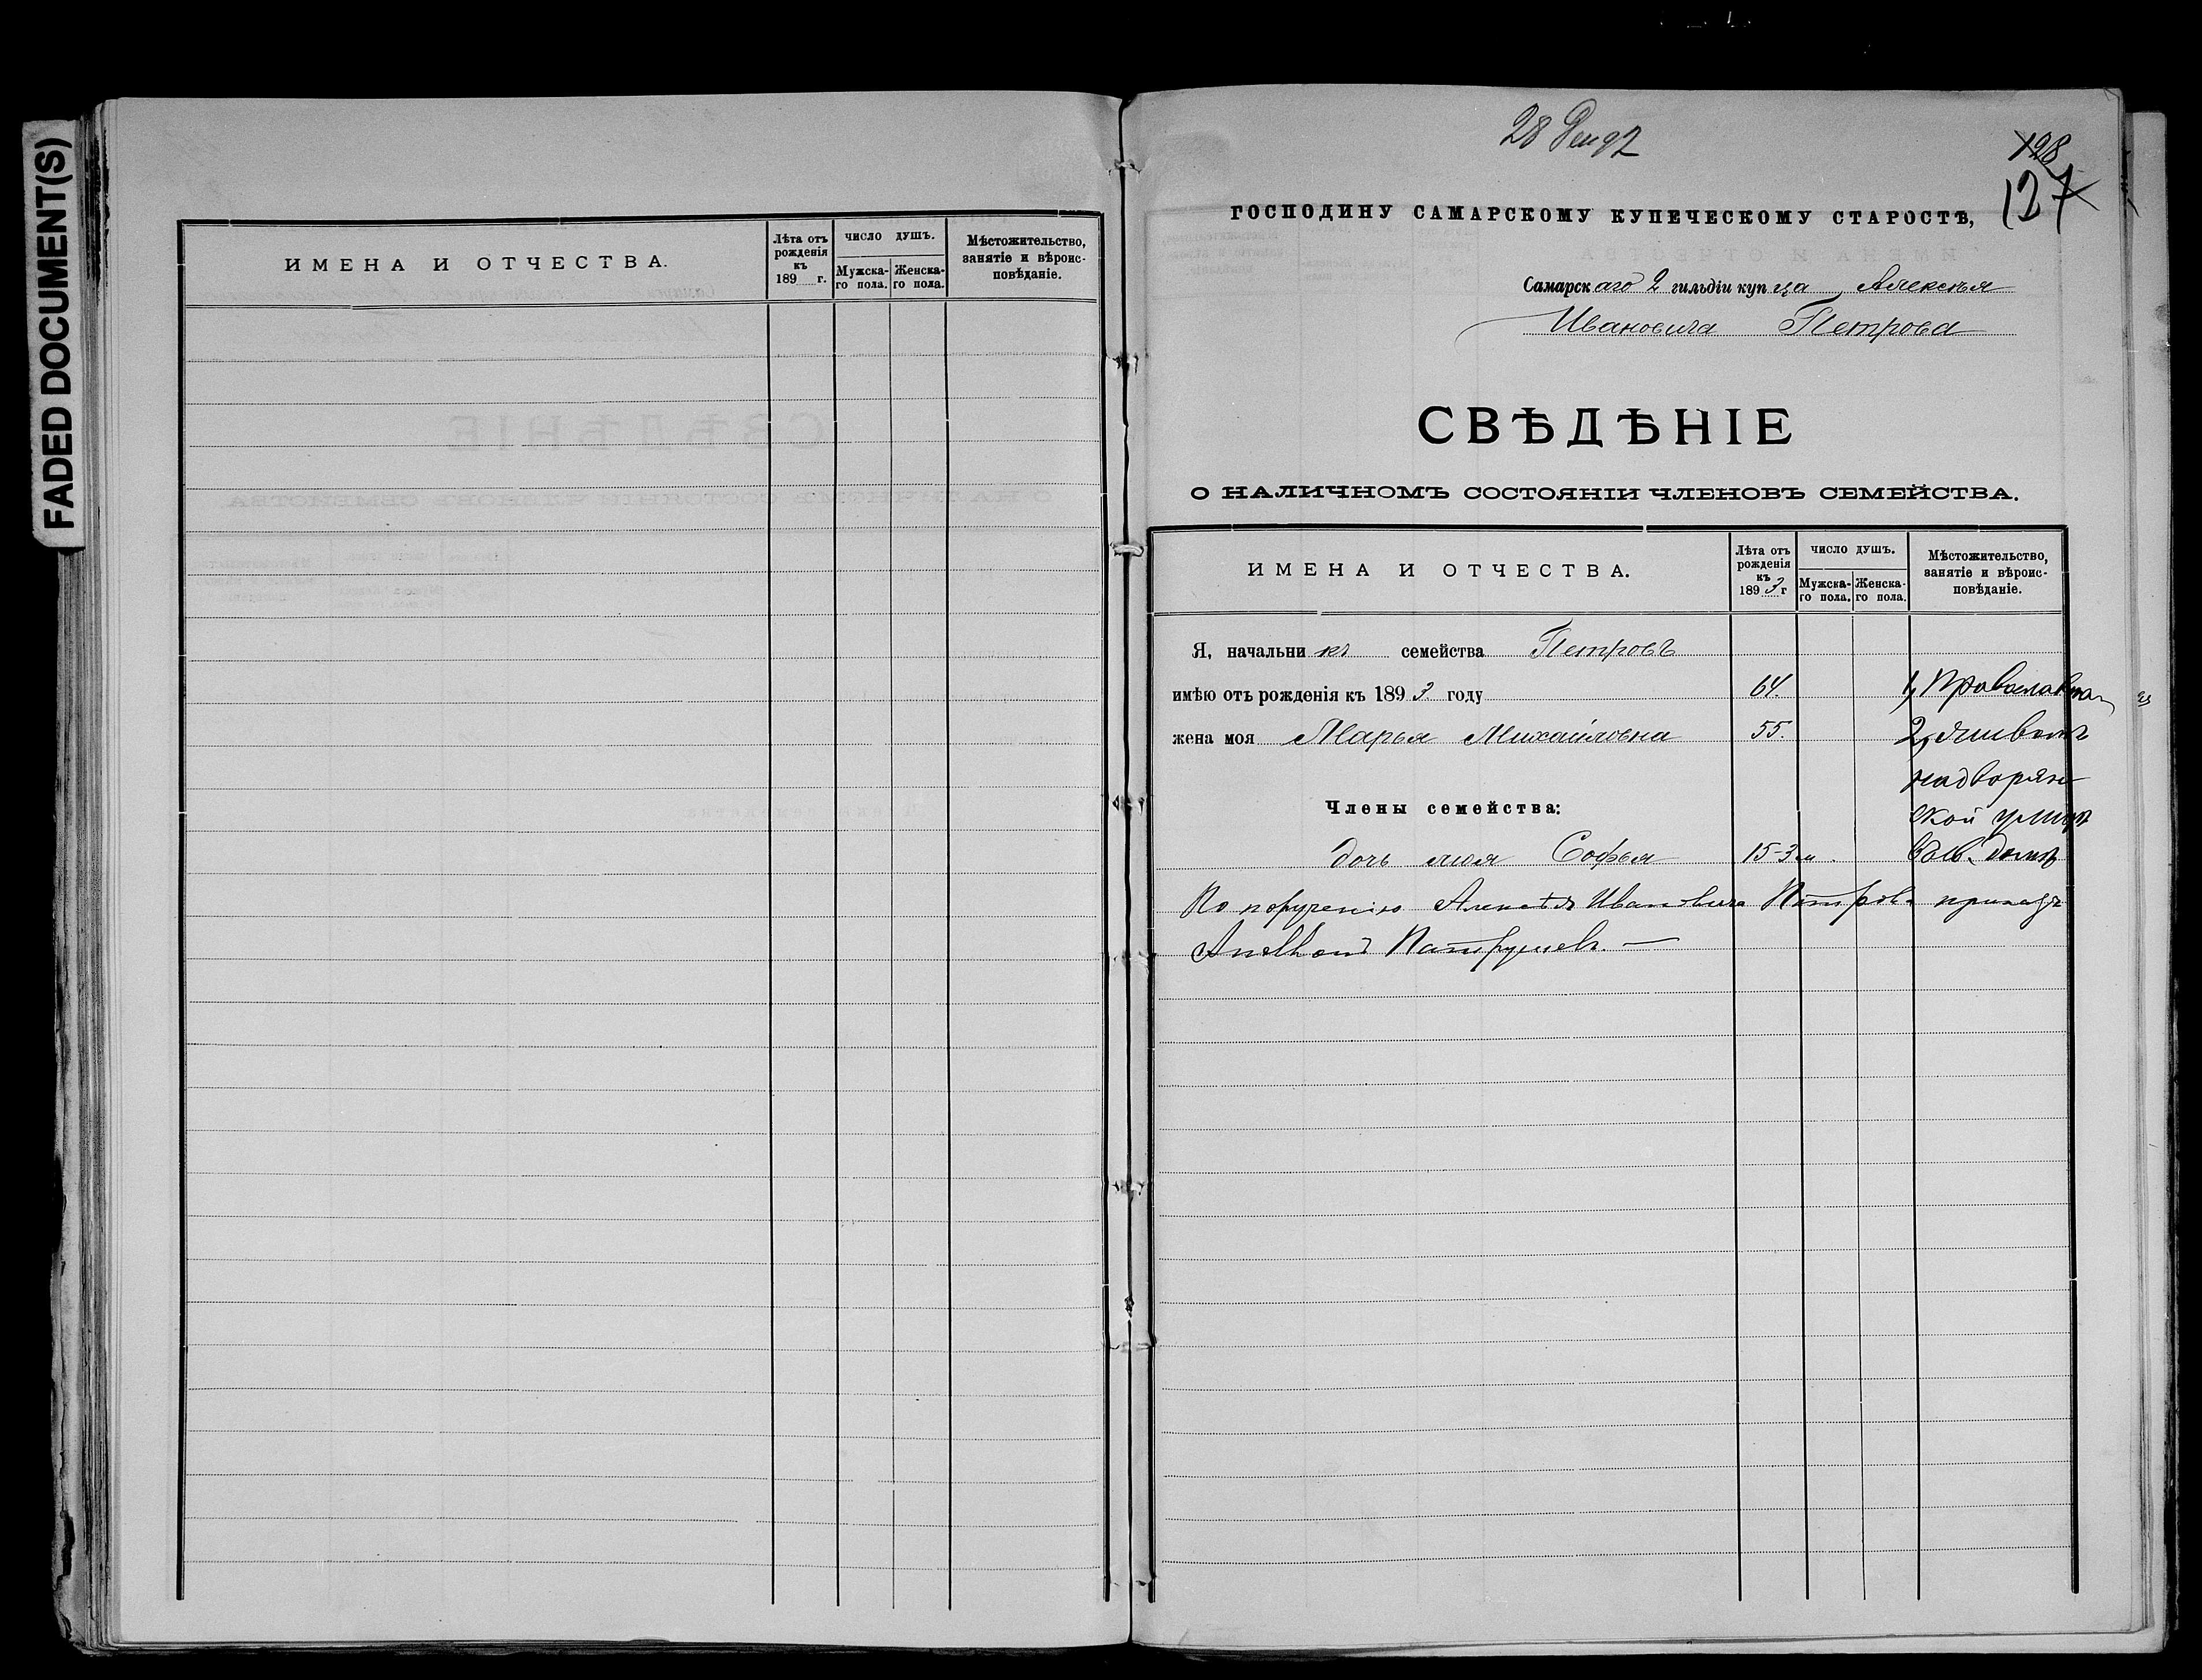 FADED DOCUMENT(S)
ИМЕНА И ОТЧЕСТВА.
Лѣта отъ рожденія къ 189 г.
ЧИСЛО ДУШЪ.
Мужска-го пола.
Женска-го пола.
Мѣстожительство, занятіе и вѣроис-повѣданіе.
28
128
127
ГОСПОДИНУ САМАРСКОМУ КУПЕЧЕСКОМУ СТАРОСТѢ,
Самарскаго 2 гильдіи купца Алексѣя
Ивановича Петрова
СВѢДѢНІЕ
О НАЛИЧНОМЪ СОСТОЯНІИ ЧЛЕНОВЪ СЕМЕЙСТВА.
ИМЕНА И ОТЧЕСТВА.
Лѣта отъ рожденія къ 1893 г
ЧИСЛО ДУШЪ.
Мужска-го пола.
Женска-го пола.
Мѣстожительство, занятіе и вѣроис-повѣданіе.
Я, начальникъ семейства Петровъ
имѣю отъ рожденія къ 1893 году 64. 1,
жена моя Марья Михайловна 55. 2,
надворян
ской улицѣ
Члены семейства:
дочь моя Софья 15-3 м. домѣ
По порученію Алексѣя Ивановича Петрова
Патрушевъ. —